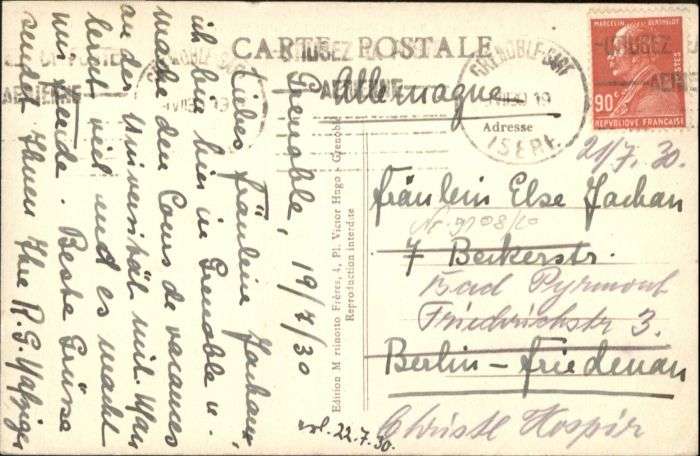 CARTE POSTALE
Grenoble, 19/7/30
Liebes Fräulein Jachan,
ich bin hier in Grenoble u.
mache den Cours de vacances
an der Universität mit. Man
lernt viel und es macht
mir Freude. Beste Grüsse
sendet Ihnen Ihre R. G.
Edition Martinotto Frères, 4, Pl. Victor Hugo - Grenoble
Reproduction interdite
Allemagne
Adresse
GRENOBLE-GARE
ISERE
19
MARCELIN BERTHELOT
POSTES
90c
REPUBLIQUE FRANÇAISE
21/7. 30.
Fräulein Else Jachan
Nr. 9108/20
7 Beckerstr.
Bad Pyrmont
Friedrichstr 3.
Berlin-Friedenau
Christl. Hospiz
erl. 22.7.30.